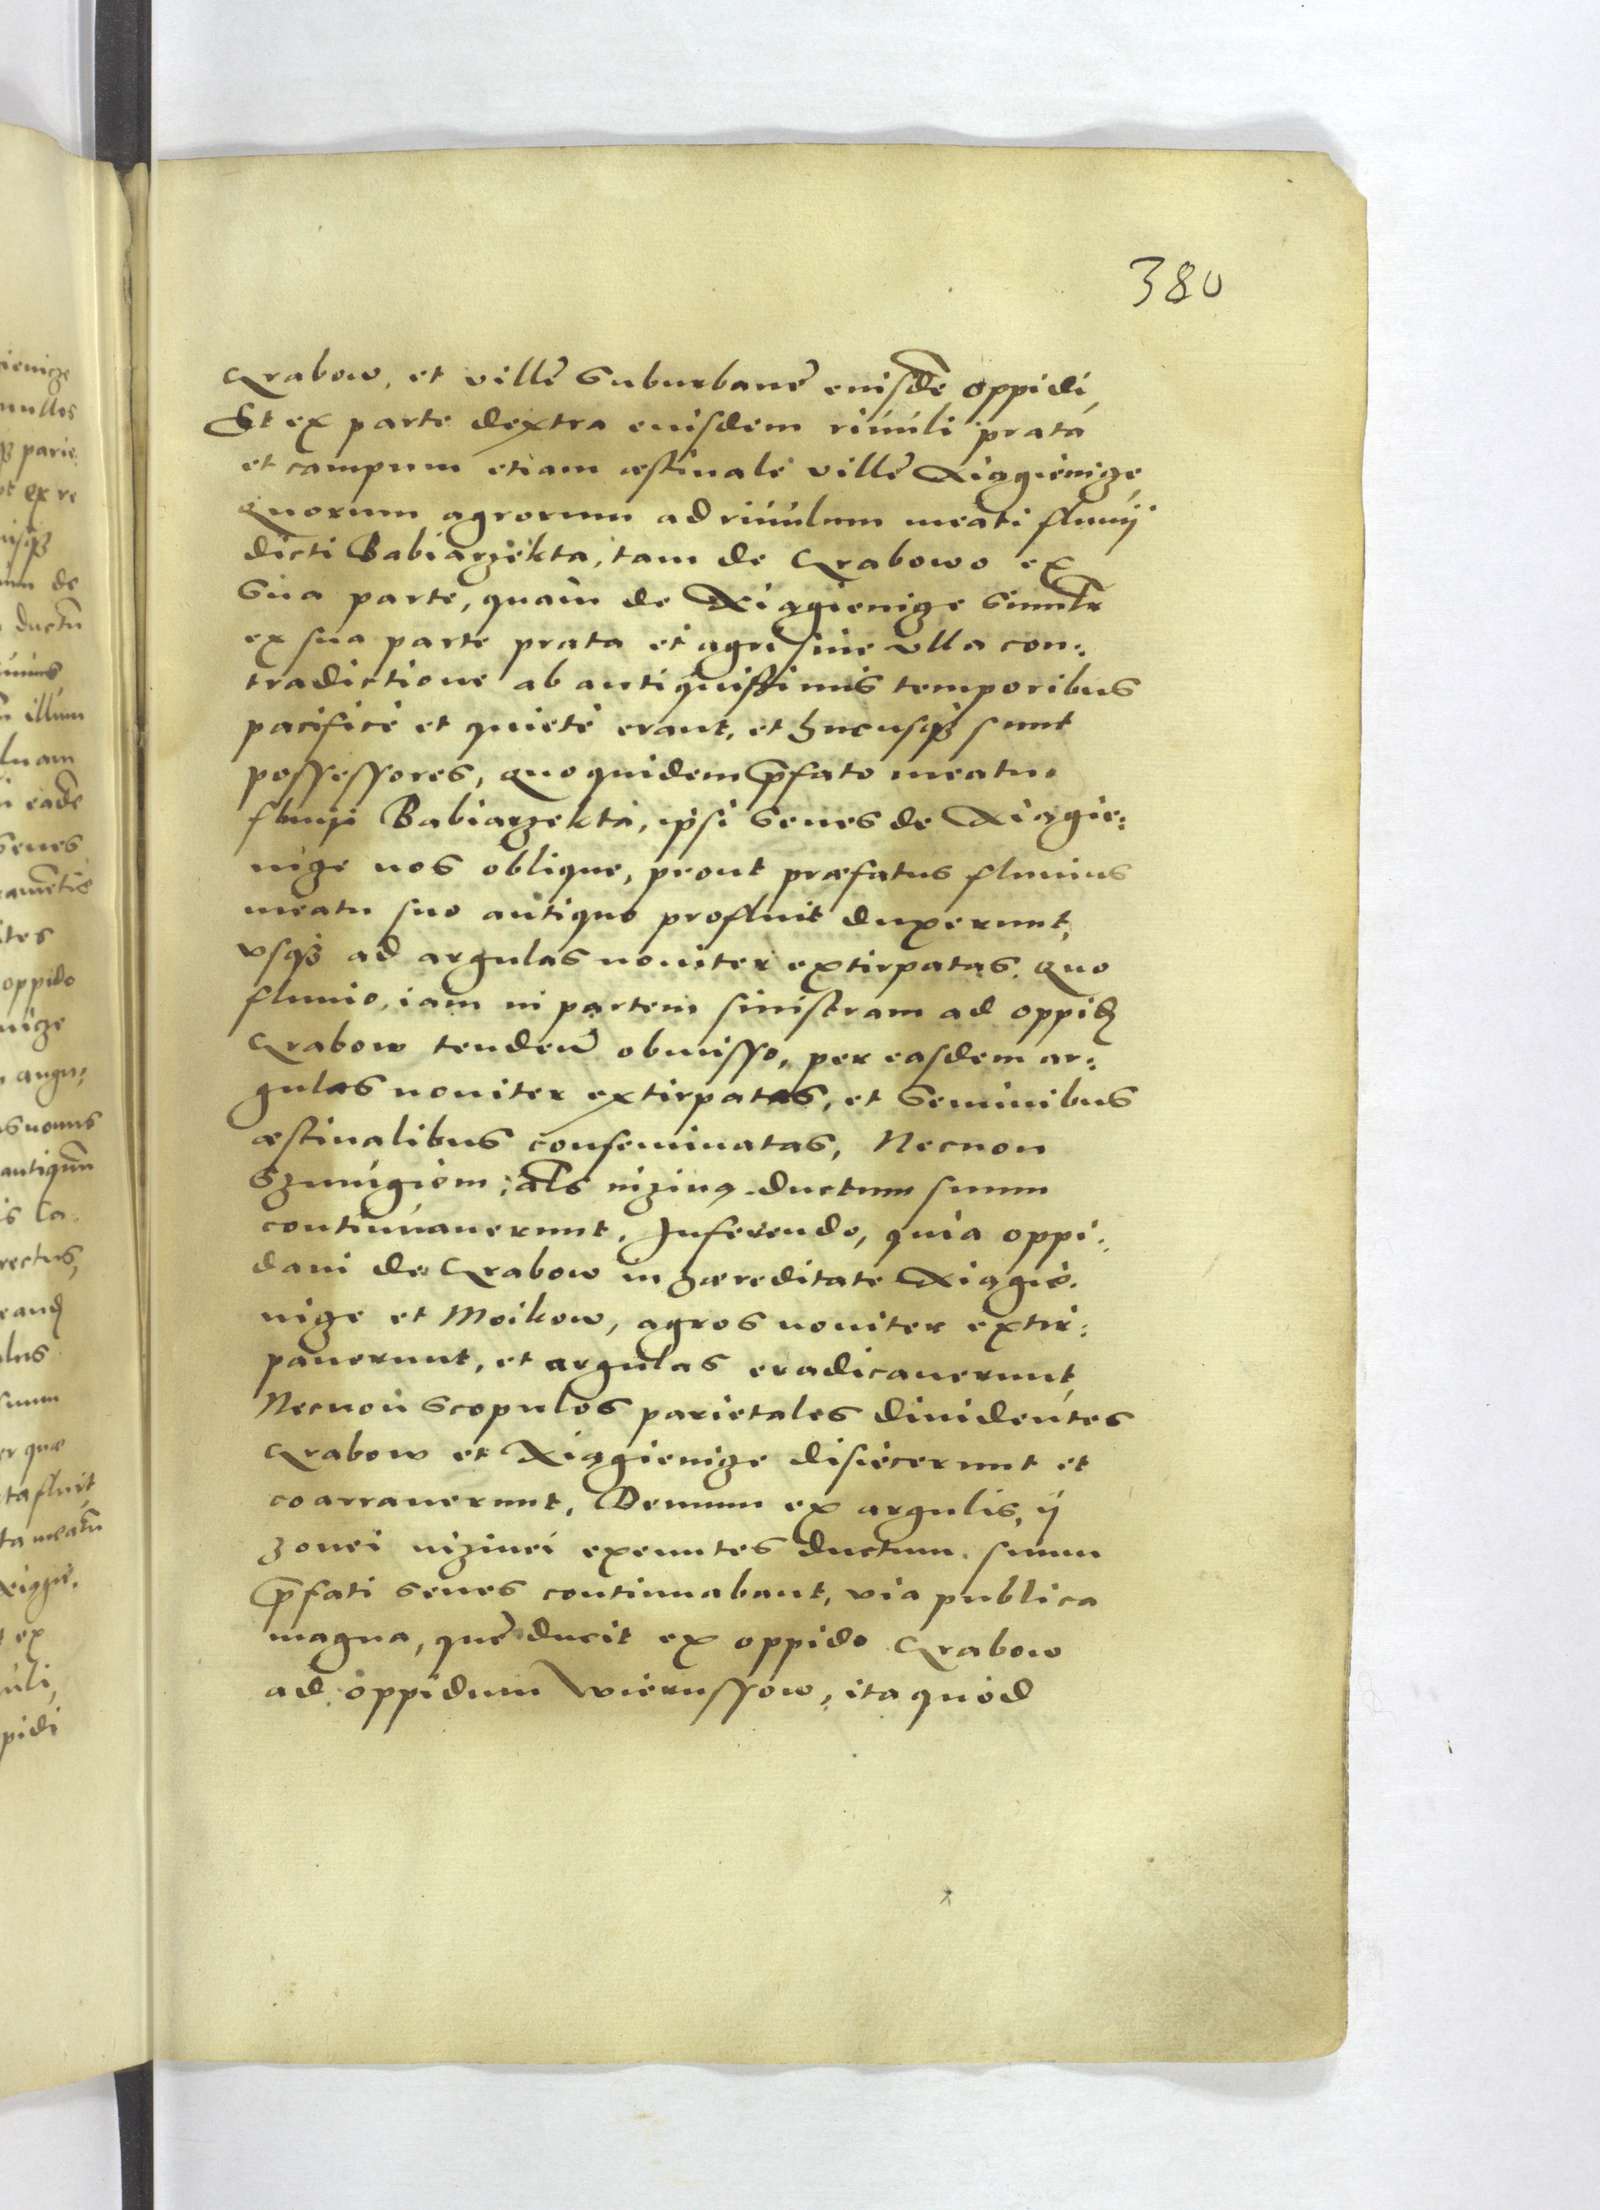 380
Grabow, et villę suburbanę eiusdē oppidi,
Et ex parte dextra eiusdem riúúli prata
et campum etiam æstiuale villę Xiązienicze,
Quorum agrorum ad riúúlum meati fluuij
dicti Babiarzekta, tam de Grabowo ex
sua parte, quàm de Xiązienicze simultr
ex sua parte prata et agri sine vlla con:
tradictione ab antiquissimis temporibus
pacificè et quietè erant, et hucusq̃ sunt
possessores, quo quidem p̄fato meatu
fluuij Babiarzekta, ipsi senes de Xiązie:
nicze nos obliquè, prout præfatus fluuius
meatu suo antiquo profluit duxerunt,
vsq̃ ad argulas nouiter extirpatas. Quo
fluuio, iam in partem sinistram ad oppid
Grabow tendeñ obmisso, per easdem ar:
gulas nouiter extirpatas, et seminibus
æstiualibus conseminatas, Necnon
als niziną ductum suum
continúauerunt. Inferendo, quia oppi:
dani de Grabow in hæreditate Xiązie:
nicze et Moikow, agros nouiter extir:
pauerunt, et argulas eradicauerunt,
Necnon scopulos parietales diuidentes
Grabow et Xiązienicze disiecerunt et
coarrauerunt. Demum ex argulis, ij
nizinei exeuntes ductum suum
p̄fati senes continuabant, via publica
magna, quę ducit ex oppido Grabow
ad oppidum Wierussow, ita quod